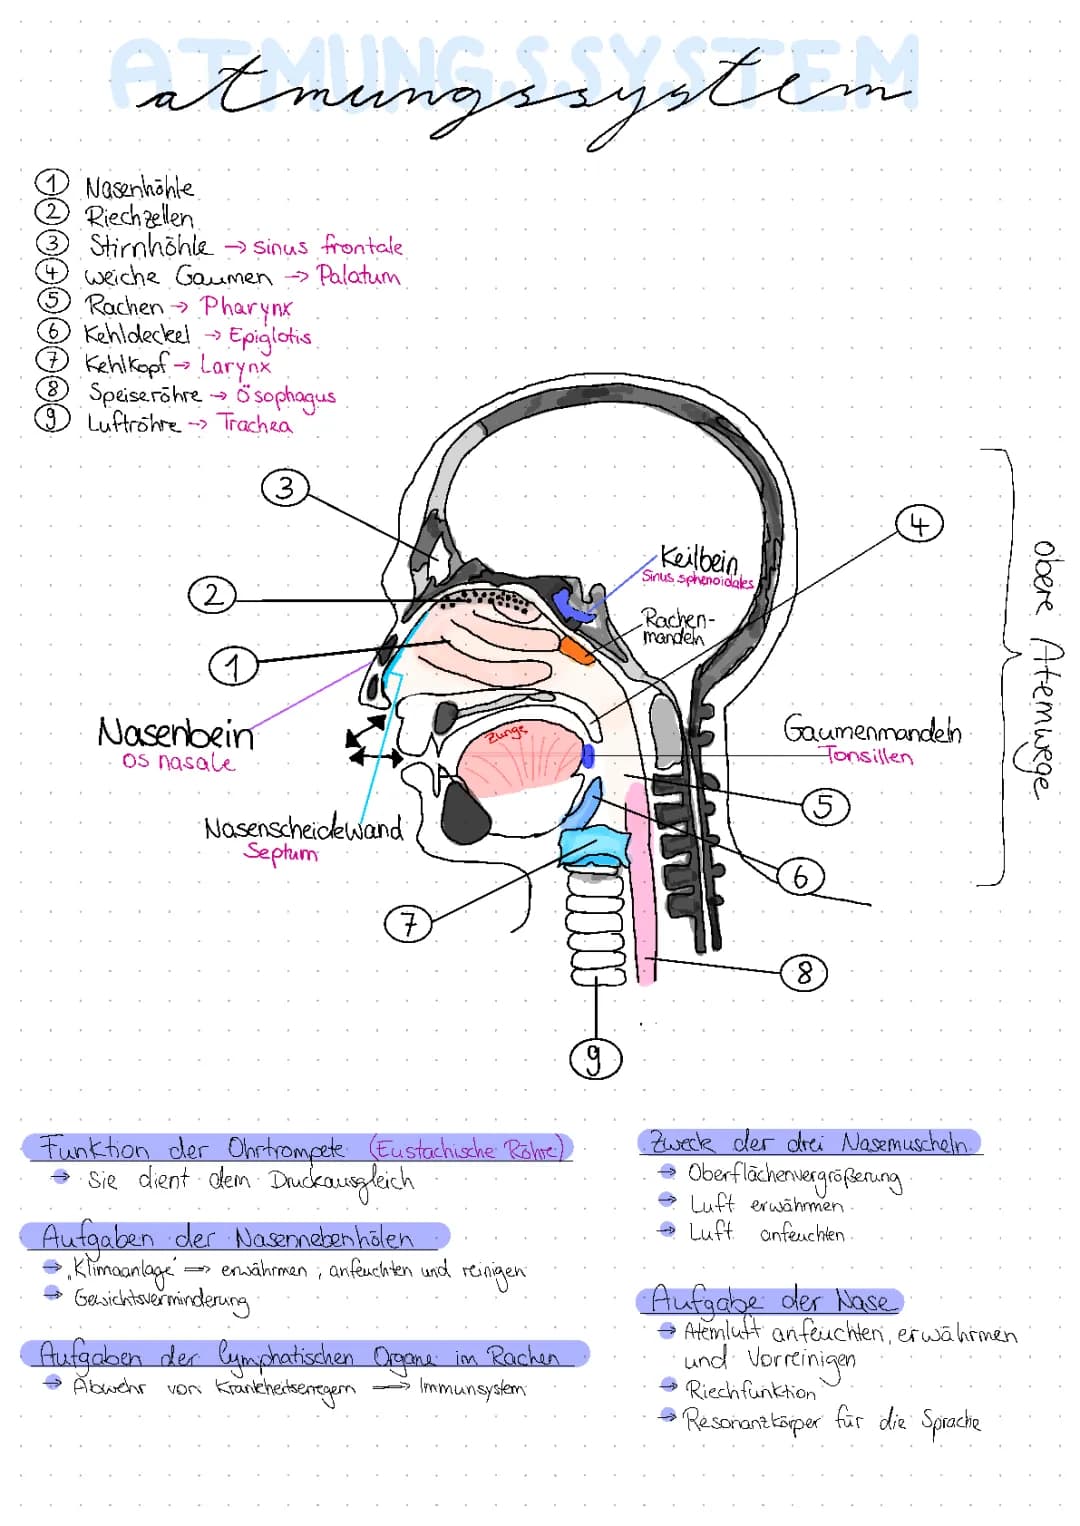 ATMUNGSSYSTEM
atmungssystem
1 Nasenhöhle
2 Riechzellen
3 Stirnhöhle → sinus frontale
4 weiche Gaumen → Palatum
5 Rachen → Pharynx
6 Kehldeckel → Epiglotis
7 Kehlkopf → Larynx
8 Speiseröhre → Ösophagus
9 Luftröhre → Trachea
3
4
obere Atemwege
Keilbein
Sinus sphenoidales
2
Rachen-
mandeln
1
Nasenbein
os nasale
Zunge
Gaumenmandeln
Tonsillen
5
Nasenscheidewand
Septum
6
7
8
9
Funktion der Ohrtrompete (Eustachische Röhre)
→ Sie dient dem Druckausgleich
Aufgaben der Nasennebenhölen
→ "Klimaanlage" ⇒ erwährmen, anfeuchten und reinigen
→ Gewichtsverminderung
Aufgaben der lymphatischen Organe im Rachen
→ Abwehr von Krankheitserregern ⟹ Immunsystem
Zweck der drei Nasemuscheln
→ Oberflächenvergrößerung
→ Luft erwähmen
→ Luft anfeuchten
Aufgabe der Nase
→ Atemluft anfeuchten, erwährmen
und Vorreinigen
→ Riechfunktion
→ Resonanzkörper für die Sprache